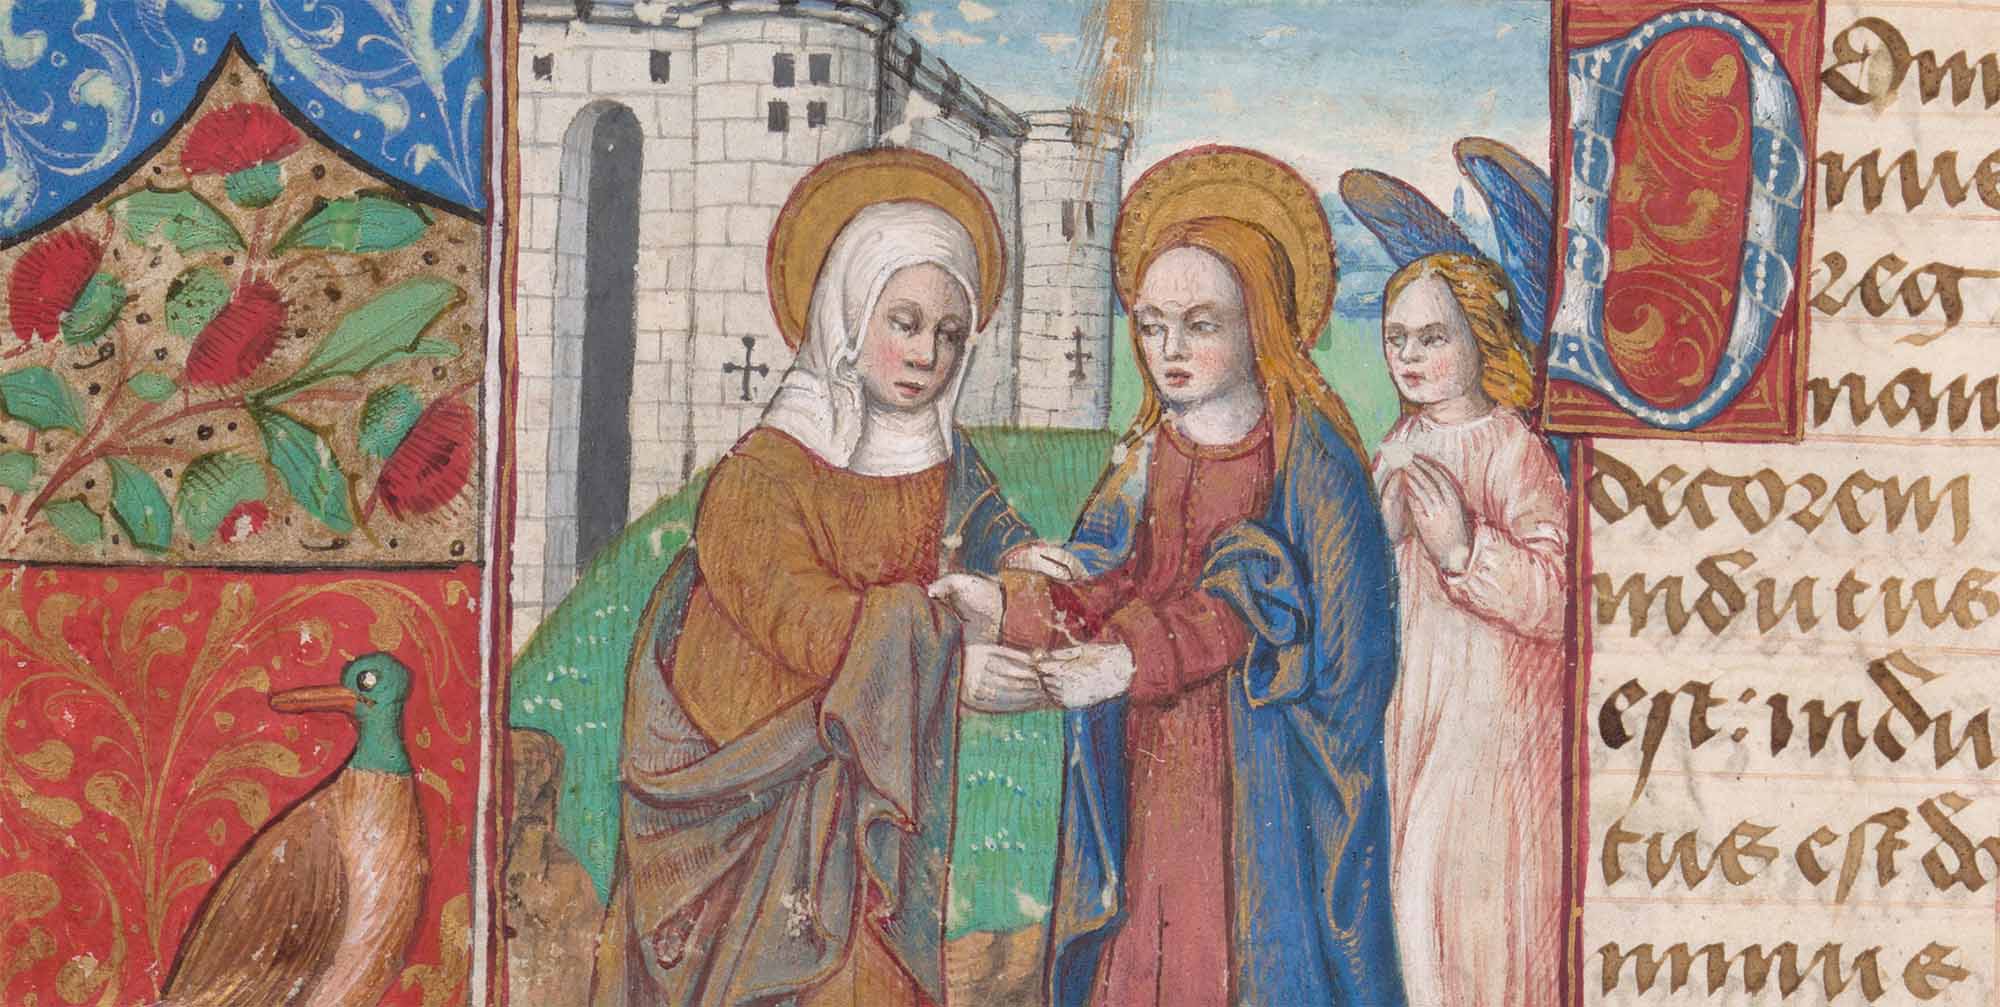 Domi
nus
reg
nau
decorem
indutus
est: indu
tus est do
minus